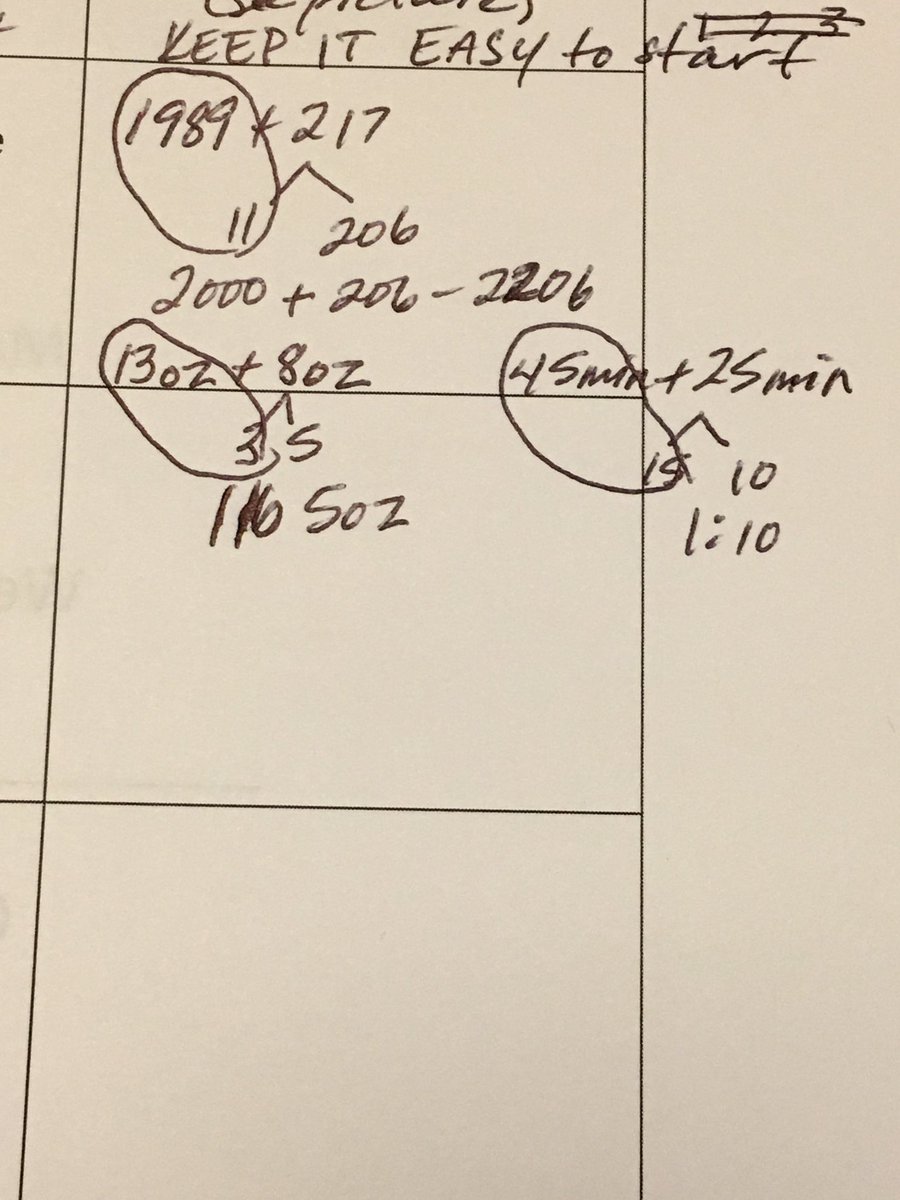 1 2 3
KEEP IT EASY to start
1989 + 217
11 206
2000 + 206 - 2206
13oz + 8oz
3 5
1 lb 5oz
45min + 25min
15 10
1:10